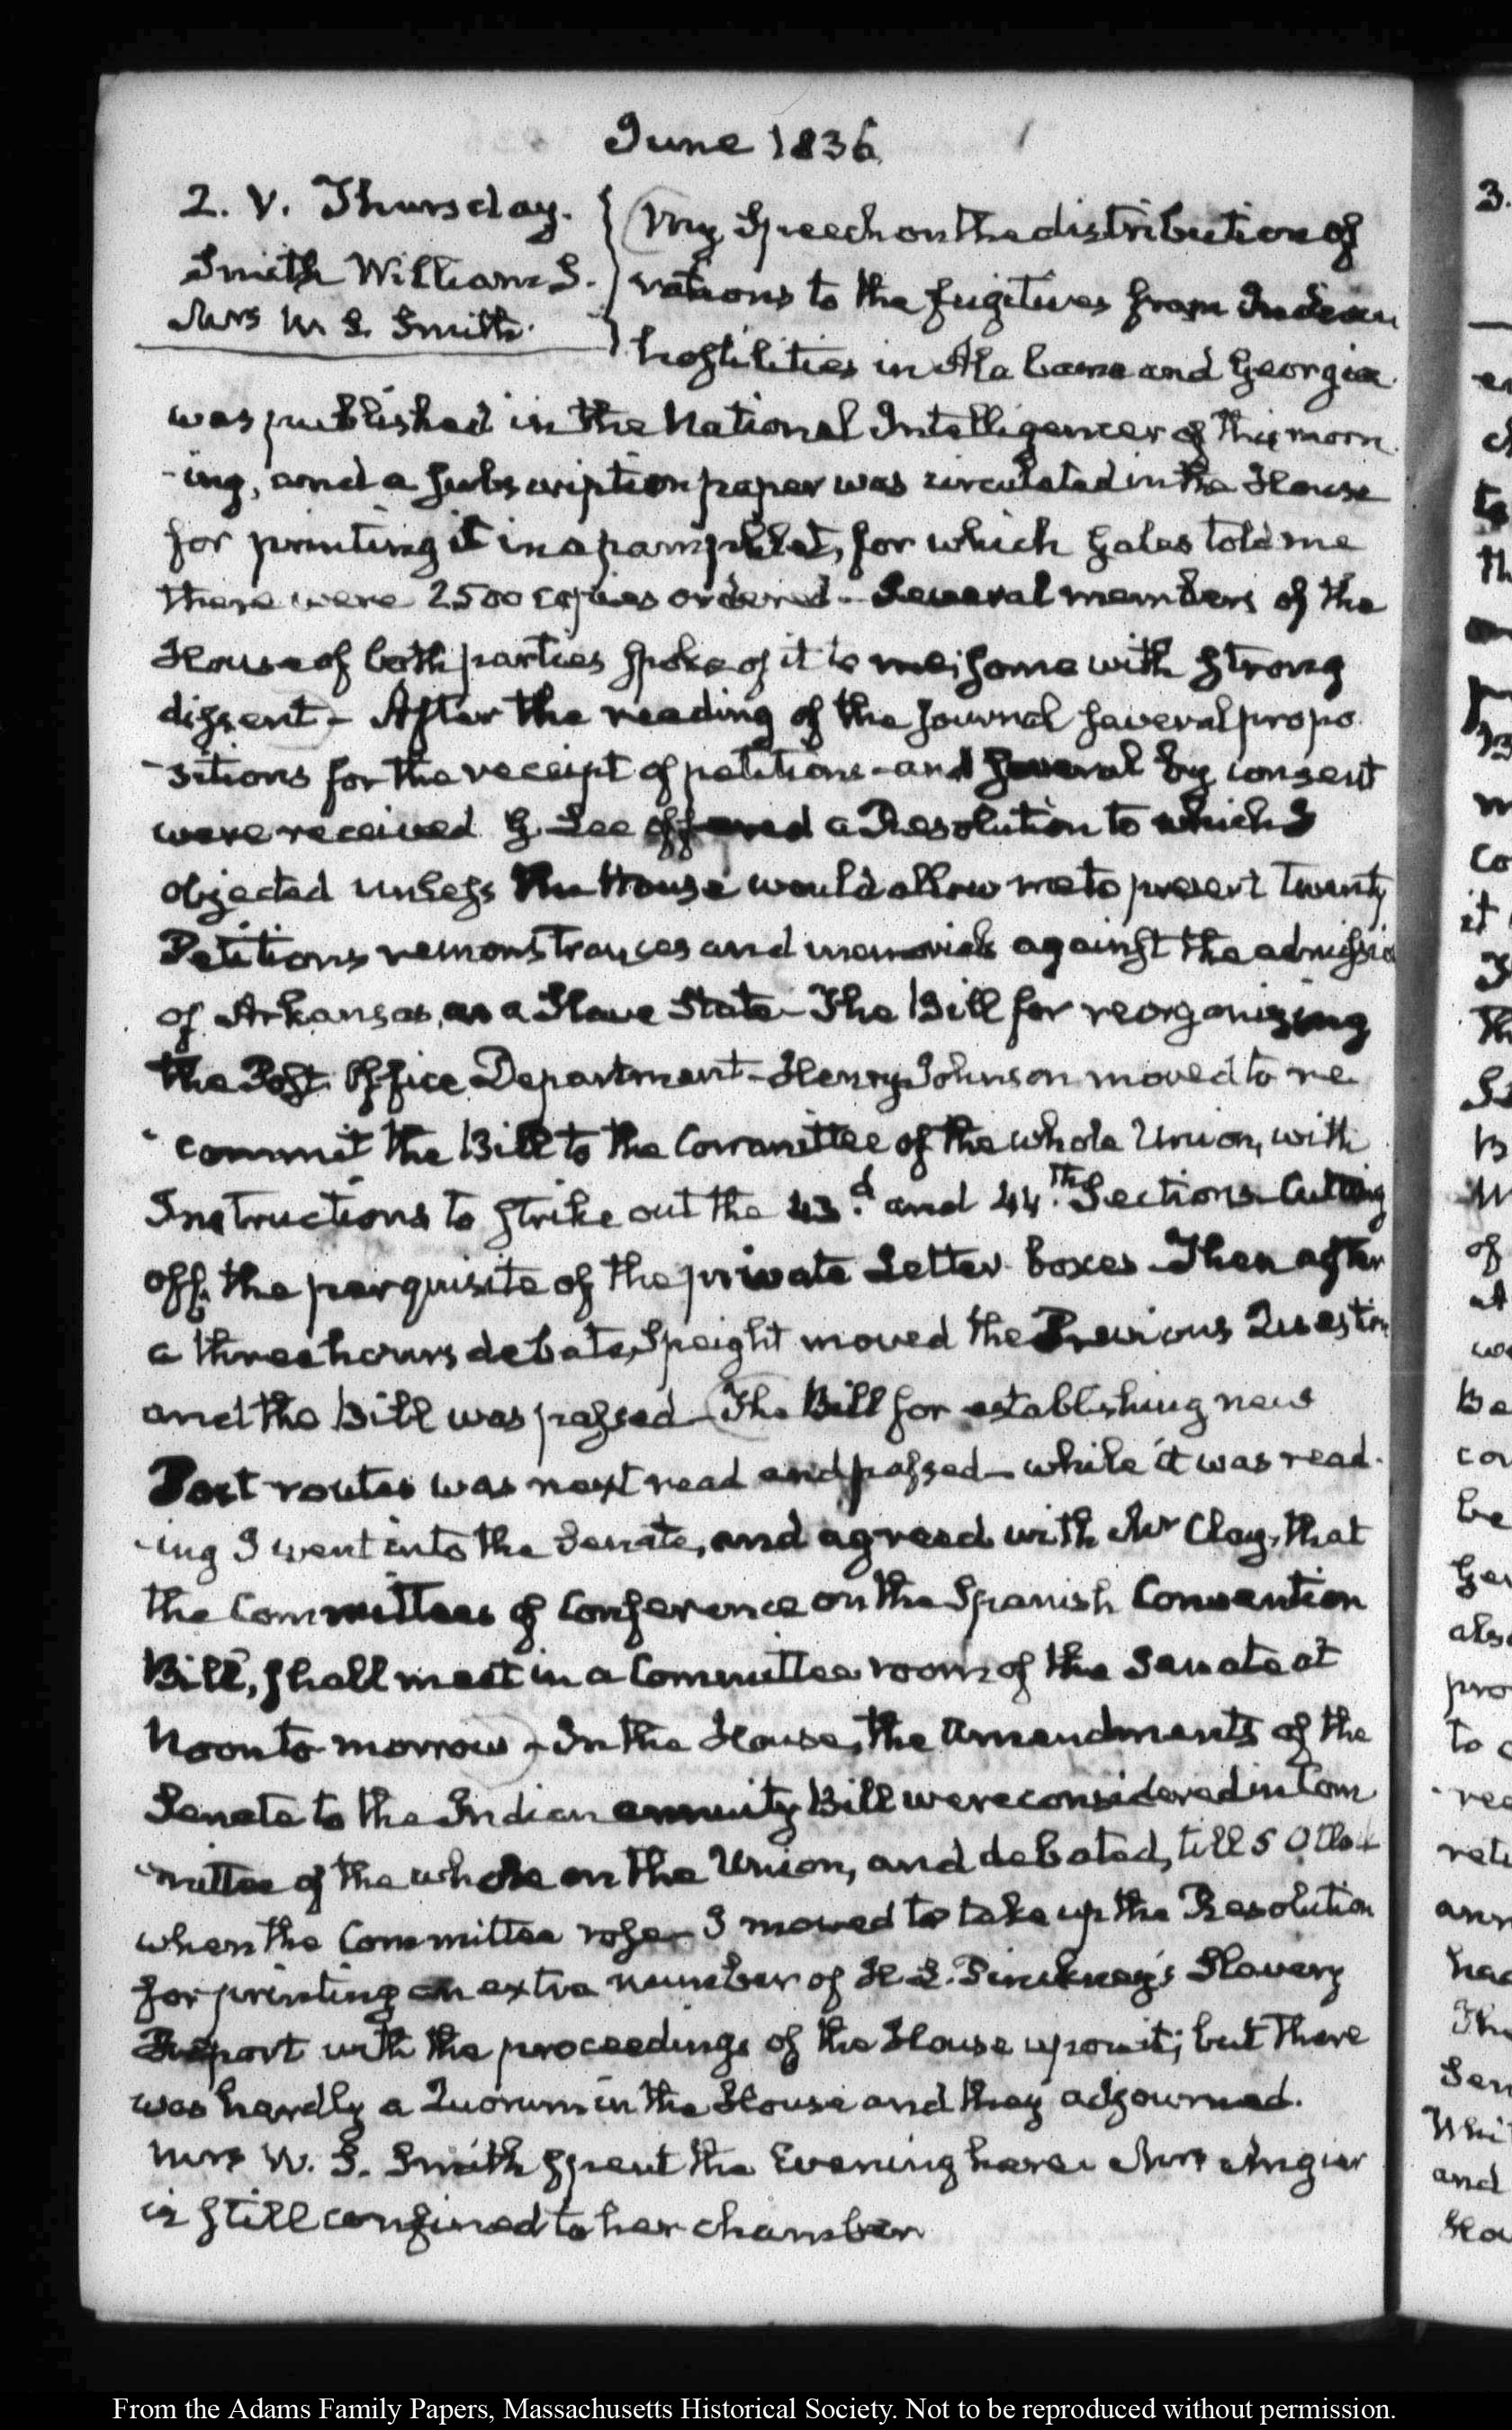 June 1836
2. V. Thursday.
Smith William S.
Mrs W. S. Smith.
My Speech on the distribution of
rations to the fugitives from Indian
hostilities in Alabama and Georgia
was published in the National Intelligencer of this morn
-ing, and a subscription paper was circulated in the House
for printing it in a pamphlet, for which Gales told me
there were 2500 copies ordered - Several members of the
House of both parties spoke of it to me; some with strong
dissent - After the reading of the Journal several propo
-sitions for the receipt of petitions - and several by consent
were received G. Lee offered a Resolution to which I
objected unless the House would allow me to present twenty
Petitions remonstrances and memorials against the admissio
of Arkansas, as a Slave State - The Bill for reorganizing
the Post Office Department - Henry Johnson moved to re
-commit the Bill to the Committee of the whole Union, with
Instructions to strike out the 43.d and 44.th Sections - Cutting
off the perquisite of the private Letter boxes - Then after
a three hours debate, Speight moved the Previous Question
and the Bill was passed - The Bill for establishing new
Post routes was next read and passed - while it was read-
-ing I went into the Senate, and agreed with Mr Clay, that
the Committees of Conference on the Spanish Convention
Bill, shall meet in a Committee room of the Senate at
Noon to-morrow - In the House, the Amendments of the
Senate to the Indian annuity Bill were considered in Com
-mittee of the whole on the Union, and debated, till 5 O'Clock
when the Committee rose - I moved to take up the Resolution
for printing an extra number of H. L. Pinckney's Slavery
Report with the proceedings of the House upon it; but there
was hardly a Quorum in the House and they adjourned.
Mrs W. S. Smith spent the Evening here. Mrs Angier
is still confined to her chamber
From the Adams Family Papers, Massachusetts Historical Society. Not to be reproduced without permission.